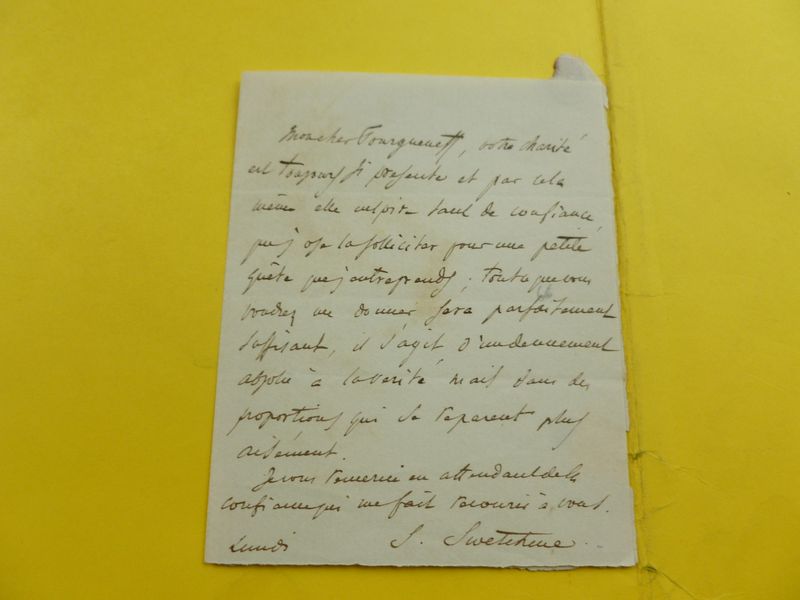 Mon cher Tourgueneff, votre charité
est toujours si présente et par cela
même elle inspire tant de confiance
que j ose la solliciter pour une petite
quête que j'entreprends ; tout ce que vous
voudrez me donner sera parfaitement
suffisant, il s'agit d'un dénuement
absolu à la vérité mais dans des
proportions qui se réparent plus
aisément.
Je vous remercie en attendant de la
confiance qui me fait recourir à vous.
Lundi S. Swetchine